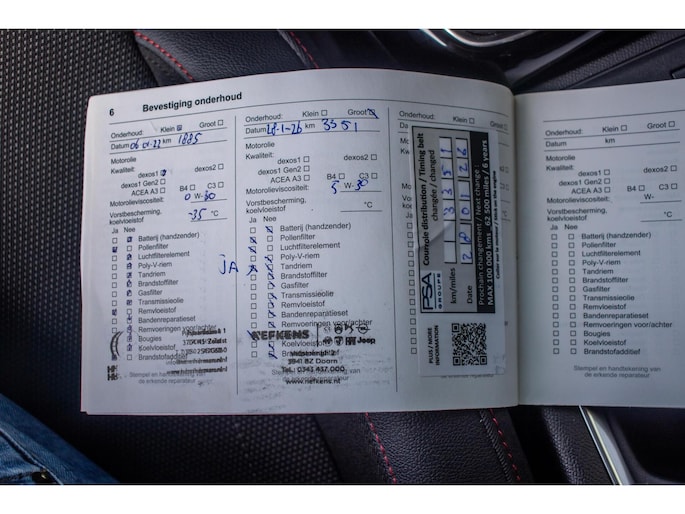 6 Bevestiging onderhoud
Onderhoud: Klein Groot
Datum 06 01-22 km 1885
Motorolie
Kwaliteit:
dexos1 dexos2
dexos1 Gen2
ACEA A3 B4 C3
Motorolieviscositeit:
0 W-30
Vorstbescherming, koelvloeistof -35 °C
Ja Nee
Batterij (handzender)
Pollenfilter
Luchtfilterelement
Poly-V-riem
Tandriem
Brandstoffilter
Gasfilter
Transmissieolie
Remvloeistof
Bandenreparatieset
Remvoeringen voor/achter
Bougies
Koelvloeistof
Brandstofadditief
Stempel en handtekening van
de erkende reparateur
Onderhoud: Klein Groot
Datum 28-1-26 km 3351
Motorolie
Kwaliteit:
dexos1 dexos2
dexos1 Gen2
ACEA A3 B4 C3
Motorolieviscositeit:
5 W-30
Vorstbescherming, koelvloeistof °C
Ja Nee
Batterij (handzender)
Pollenfilter
Luchtfilterelement
Poly-V-riem
JA Tandriem
Brandstoffilter
Gasfilter
Transmissieolie
Remvloeistof
Bandenreparatieset
Remvoeringen voor/achter
NEFKENS
Jeep
3941 BZ Doorn
Tel.: 0343 437 000
www.nefkens.nl
Stempel en handtekening van
de erkende reparateur
PSA
GROUPE
Courroie distribution / Timing belt
changée / changed
km/miles 3351
Date 280126
Prochain changement / Next change :
MAX 100 000 kms 62 500 miles / 6 years
PLUS / MORE
INFORMATION
Onderhoud: Klein Groot
Datum km
Motorolie
Kwaliteit:
dexos1 dexos2
dexos1 Gen2
ACEA A3 B4 C3
Motorolieviscositeit:
W-
Vorstbescherming, koelvloeistof °C
Ja Nee
Batterij (handzender)
Pollenfilter
Luchtfilterelement
Poly-V-riem
Tandriem
Brandstoffilter
Gasfilter
Transmissieolie
Remvloeistof
Bandenreparatieset
Remvoeringen voor/achter
Bougies
Koelvloeistof
Brandstofadditief
Stempel en handtekening van
de erkende reparateur